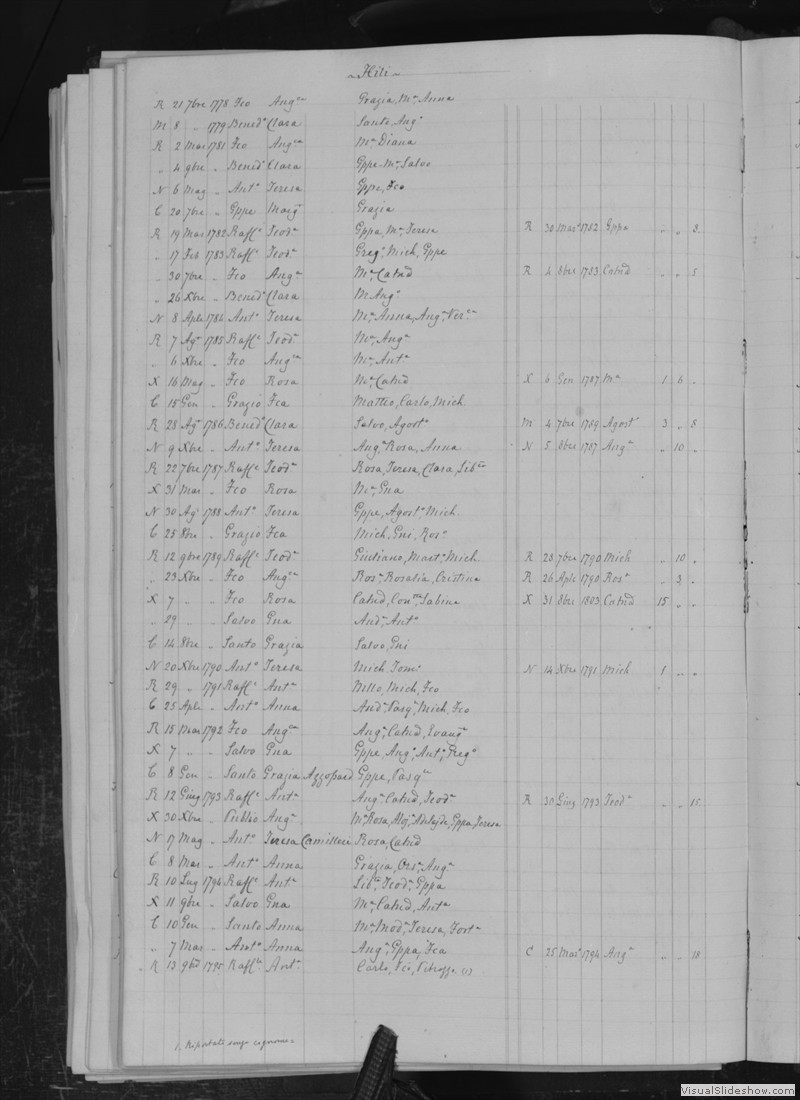 Hili
R 21 7bre 1778 Fco Angca Grazia, Ma Anna
M 8 „ 1779 Benedo Clara Santo, Ango
R 2 Mar 1781 Fco Angca Ma Diana
„ 4 9bre „ Benedo Clara Gppe Ma Salvo
N 6 Mag „ Anto Teresa Gppe, Fco
C 20 7bre „ Gppe Marga Grazia
R 19 Mar 1782 Raffe Teoda Gppa, Ma Teresa R 30 Maro 1782 Gppa „ „ 3
„ 17 Feb 1783 Raffe Teoda Grego Mich, Gppe
„ 30 7bre „ Fco Anga Ma Catnd R 4 8bre 1783 Catnd „ „ 5
„ 26 Xbre „ Benedo Clara M Ango
N 8 Aple 1784 Anto Teresa Ma Anna, Anga
R 7 Ago 1785 Raffe Teoda Ma Anga
„ 6 Xbre „ Fco Angca Ma Anta
X 16 Mag „ Fco Rosa Ma Catnd X 6 Gen 1787 Ma 1 6 „
C 15 Gen „ Grazio Fca Matteo, Carlo, Mich
R 28 Ago 1786 Benedo Clara Salvo, Agosto M 4 7bre 1789 Agosto 3 „ 8
N 9 Xbre „ Anto Teresa Anga Rosa, Anna N 5 8bre 1787 Anga „ 10 „
R 22 7bre 1787 Raffe Teoda Rosa, Teresa, Clara, Liba
X 31 Mar „ Fco Rosa Ma Gna
N 30 Ago 1788 Anto Teresa Gppe, Agosto Mich
C 25 8bre „ Grazio Fca Mich, Gni, Roso
R 12 9bre 1789 Raffe Teoda Giuliano, Marto Mich R 28 7bre 1790 Mich „ 10 „
„ 23 Xbre „ Fco Anga Rosa Rosalia, Cristina R 26 Aple 1790 Rosa „ 3 „
X 7 „ „ Fco Rosa Catnd, Sabina X 31 8bre 1803 Catnd 15 „ „
„ 29 „ „ Salvo Gna Anda Anta
C 14 8bre „ Santo Grazia Salvo, Gni
N 20 Xbre 1790 Anto Teresa Mich Tomo N 14 Xbre 1791 Mich 1 „ „
R 29 „ 1791 Raffe Anta Mllo, Mich, Fco
C 25 Aple „ Anto Anna Anda Pasqo Mich, Fco
R 15 Mar 1792 Fco Angca Anga Catnd, Evanga
X 7 „ „ Salvo Gna Gppe Ango Anto Grego
C 8 Gen „ Santo Grazia Azzopard Gppe, Pasqo
R 12 Giug 1793 Raffe Anta Anga Catnd, Teoda R 30 Giug 1793 Teoda „ „ 15
X 30 Xbre „ Publio Anga Ma Rosa, Aloja Adelayde, Gppa, Teresa
N 17 Mag „ Anto Teresa Camilleri Rosa, Catnd
C 8 Mar „ Anto Anna Grazia, Orsa Anga
R 10 Lug 1794 Raffe Anta Liba Teoda Gppa
X 11 9bre „ Salvo Gna Ma Catnd, Anta
C 10 Gen „ Santo Anna Ma Moda Teresa, Forta
„ 7 Mar „ Anto Anna Anga Gppa, Fca C 25 Maro 1794 Anga „ „ 18
„ R 13 9bre 1795 Raffe Anta Carlo, Fco, (1)
1. Riportati senza cognome
VisualSlideshow.com